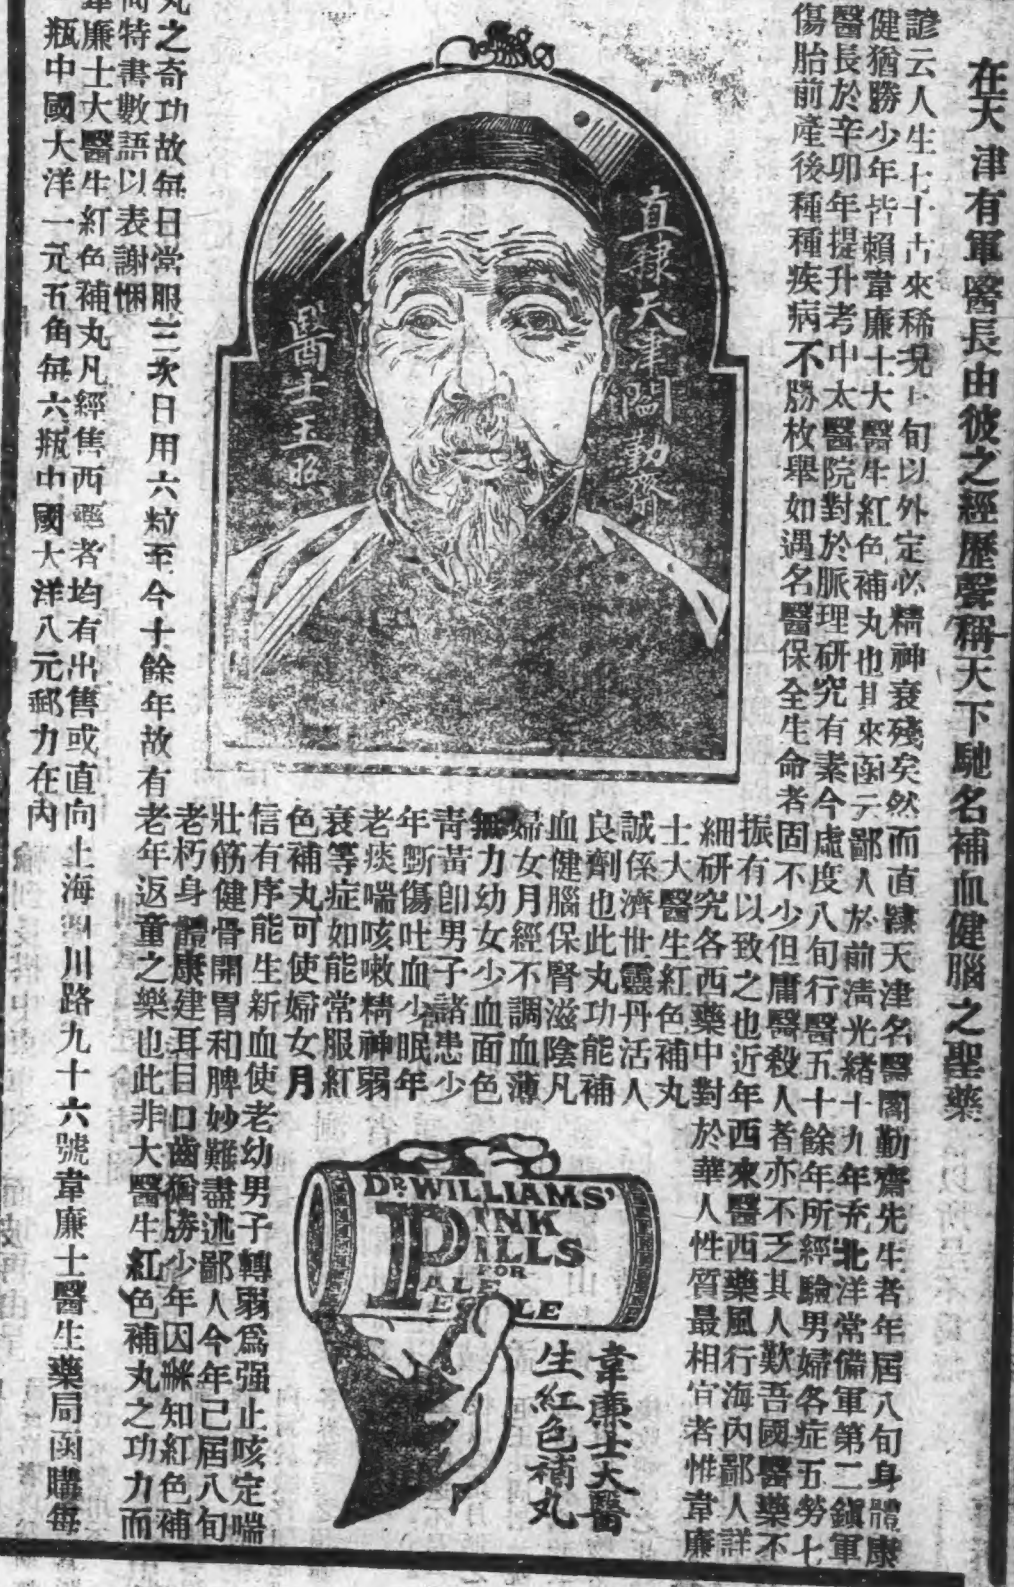 在天津有軍醫長由彼之經歷聲稱天下馳名補血健腦之聖藥
諺云人生七十古來稀況八旬以外定必精神衰殘矣然而直隸天津名醫閻勤齋先生者年屆八旬身體康
健猶勝少年皆賴韋廉士大醫生紅色補丸也其來函云鄙人於前清光緒十九年充北洋常備軍第二鎮軍
醫長於辛卯年提升考中太醫院對於脈理研究有素今虛度八旬行醫五十餘年所經驗男婦各症五勞七
傷胎前產後種種疾病不勝枚舉如遇名醫保全生命者固不少但庸醫殺人者亦不乏其人歎吾國醫藥不
振有以致之也近年西來醫西藥風行海內鄙人詳
細研究各西藥中對於華人性質最相宜者惟韋廉
士大醫生紅色補丸
誠係濟世靈丹活人
良劑也此丸功能補
血健腦保腎滋陰凡
婦女月經不調血薄
無力幼女少血面色
青黃卽男子諸患少
年斲傷吐血少眠年
老痰喘咳嗽精神弱
衰等症如能常服紅
色補丸可使婦女月
信有序能生新血使老幼男子轉弱爲强止咳定喘
壯筋健骨開胃和脾妙難盡述鄙人今年已屆八旬
老朽身體康建耳目口齒猶勝少年因知紅色補
丸之奇功故每日常服三次日用六粒至今十餘年故有
老年返童之樂也此非大醫生紅色補丸之功力而
特書數語以表謝悃
韋廉士大醫生紅色補丸凡經售西藥者均有出售或直向上海四川路九十六號韋廉士醫生藥局函購每
瓶中國大洋一元五角每六瓶中國大洋八元郵力在內
直隸天津閻勤齋
醫士玉照
DR. WILLIAMS'
PINK
PILLS
FOR
PALE
PEOPLE
韋廉士大醫
生紅色補丸